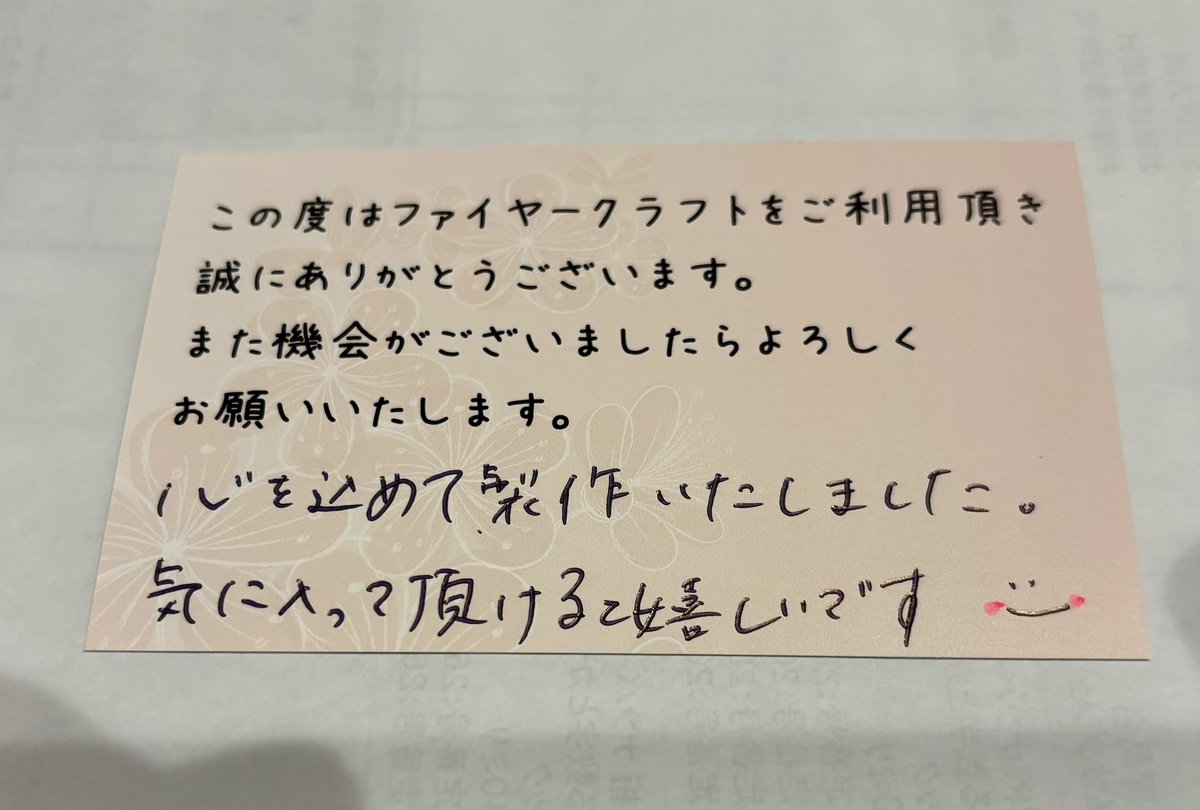 この度はファイヤークラフトをご利用頂き
誠にありがとうございます。
また機会がございましたらよろしく
お願いいたします。
心を込めて製作いたしました。
気に入って頂けると嬉しいです